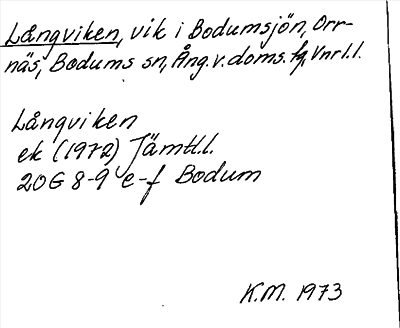 Långviken, vik i Bodumsjön, Orr-
näs, Bodums sn, Ång. v. doms. fg, Vnrl.l.
Långviken
ek (1972) Jämtl.l.
20G 8-9 e-f Bodum
K.M. 1973